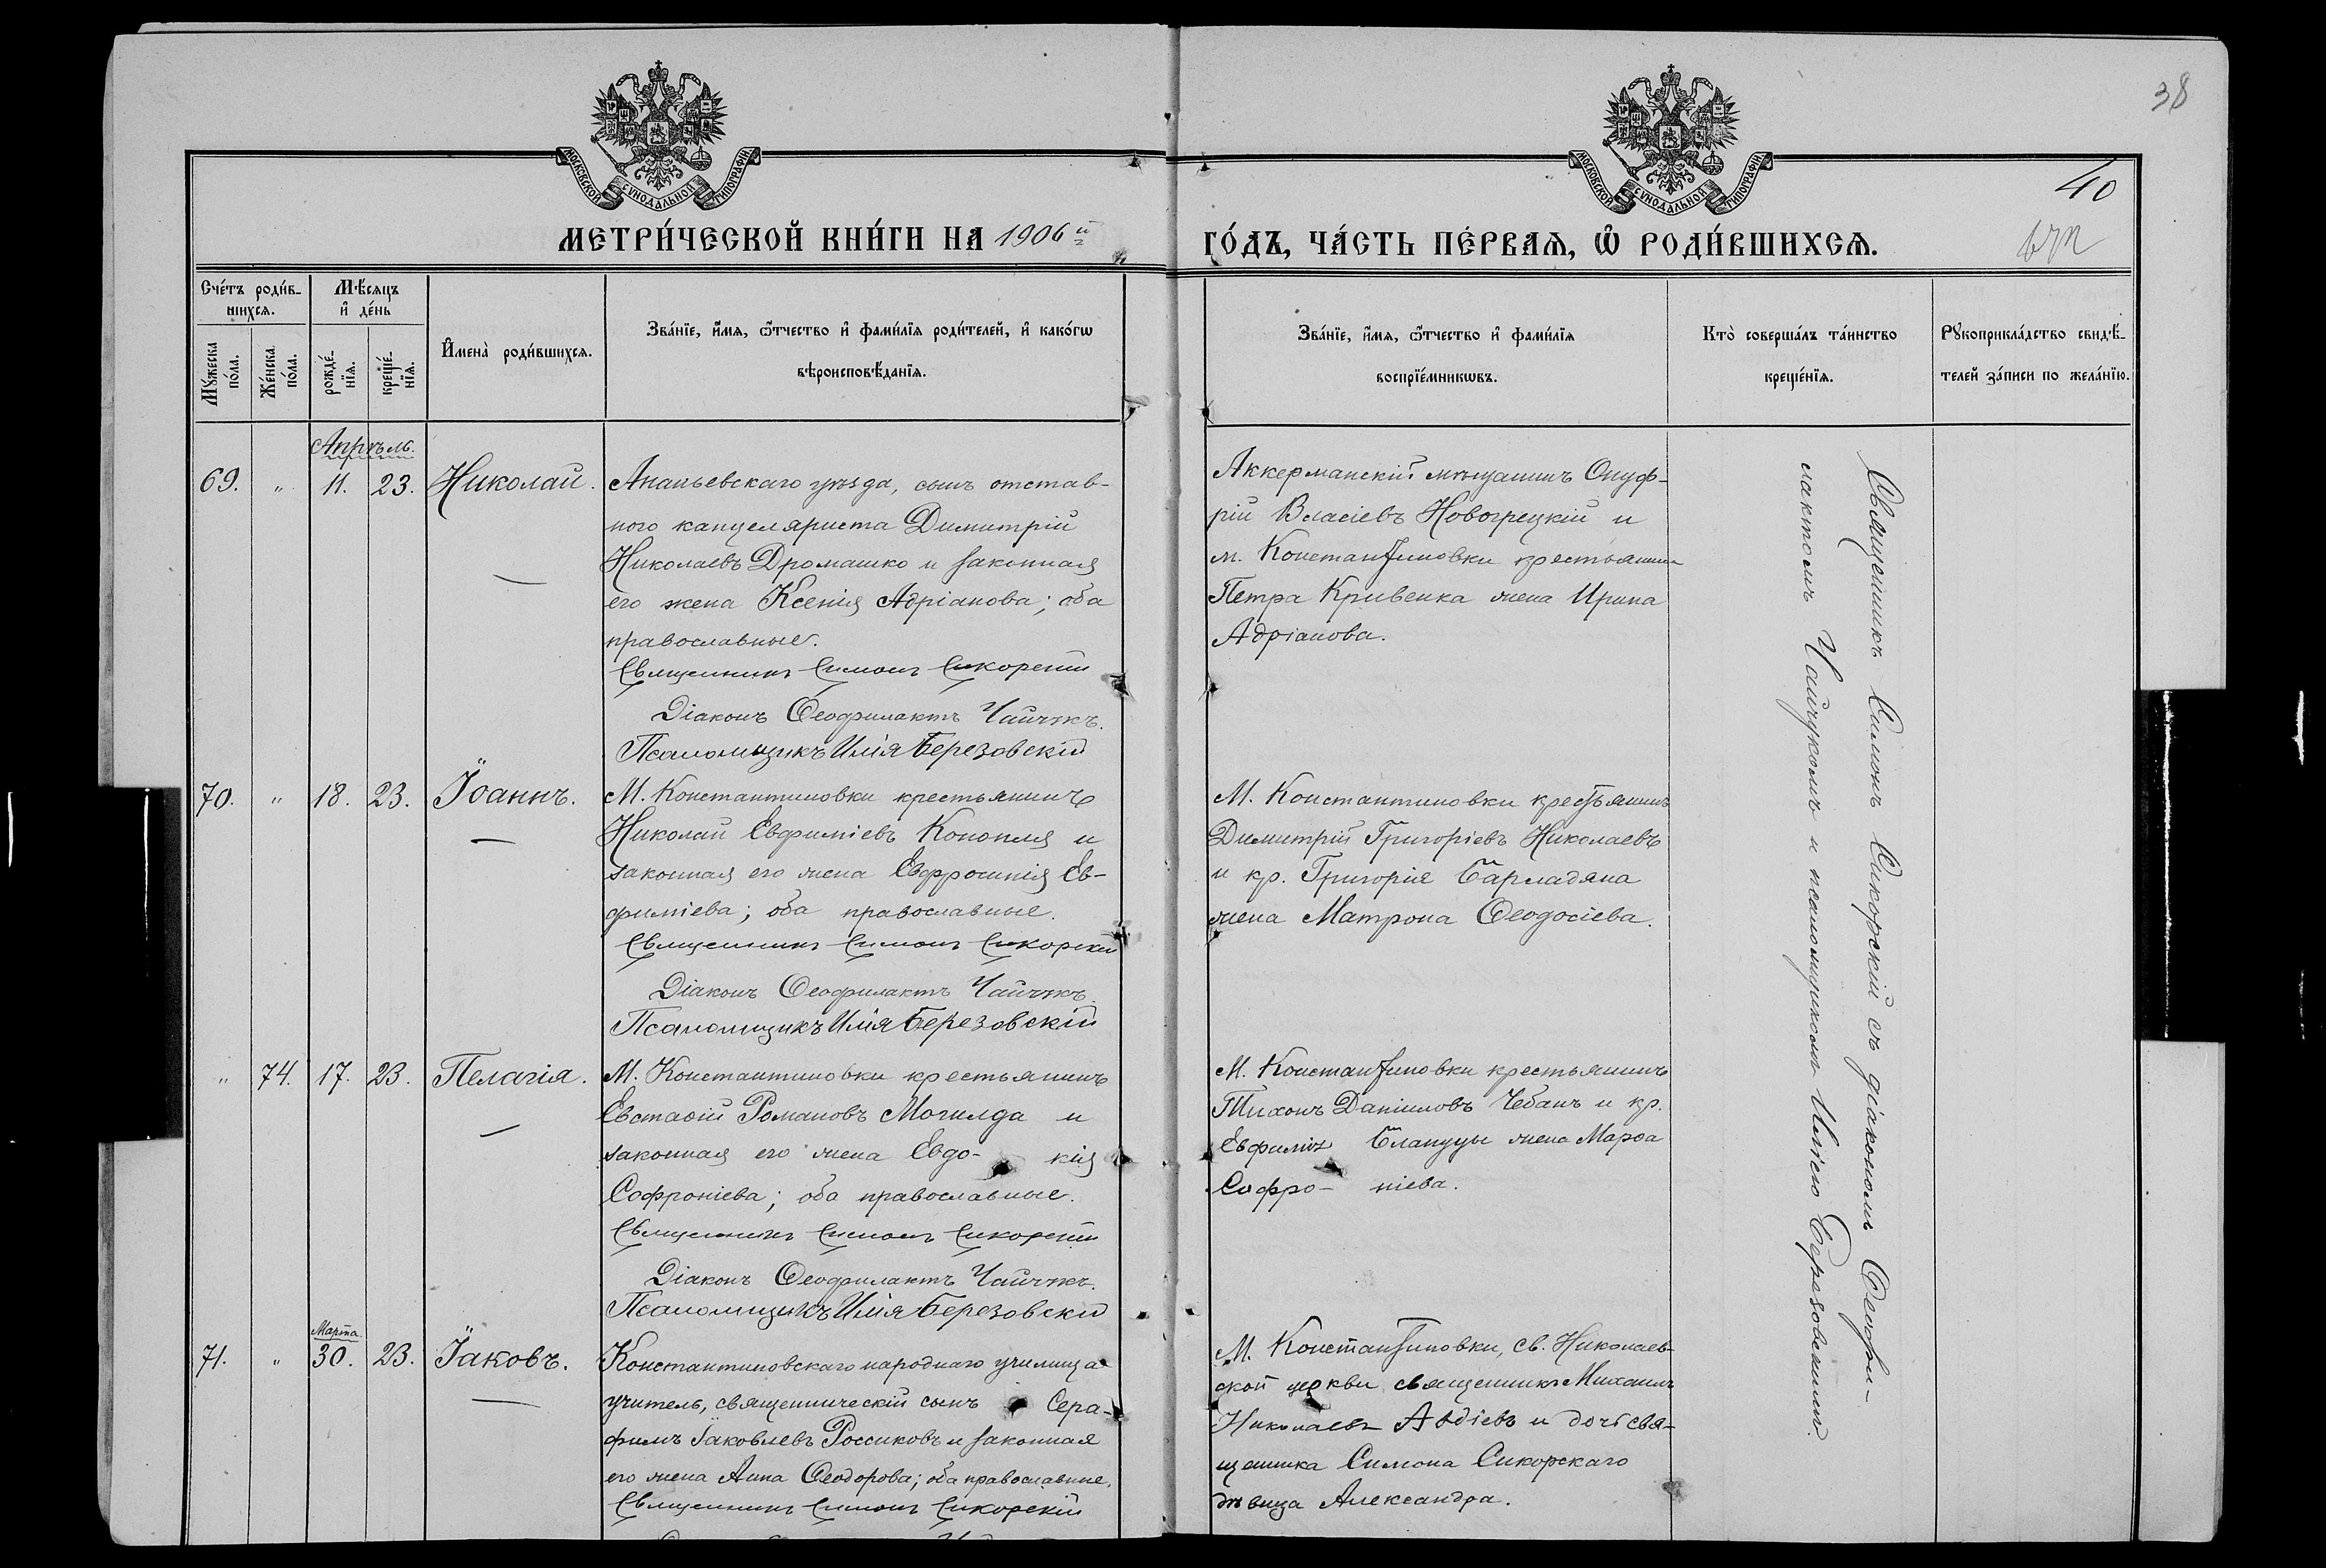 38
40
МОСКОВСКОЙ СѴНОДАЛЬНОЙ ТИПОГРАФІИ
МОСКОВСКОЙ СѴНОДАЛЬНОЙ ТИПОГРАФІИ
МЕТРИ́ЧЕСКОЙ КНИ́ГИ НА 1906 й
ГО́ДЪ, ЧА́СТЬ ПЕ́РВАѦ, Ѽ РОДИ́ВШИХСѦ.
Сче́тъ роди́в-
шихсѧ.
Мѣ́сѧцъ
и҆ де́нь
Мꙋ́жеска
по́ла.
Же́нска
по́ла.
рожде́-
нїѧ.
креще́-
нїѧ.
И҆мена̀ роди́вшихсѧ.
Зва́нїе, и҆́мѧ, ѻ҆́тчество и҆ фами́лїѧ роди́телей, и҆ како́гѡ
вѣроисповѣ́данїѧ.
Зва́нїе, и҆́мѧ, ѻ҆́тчество и҆ фами́лїѧ
воспрїе́мникѡвъ.
Кто̀ соверша́лъ та́инство
креще́нїѧ.
Рꙋкоприкла́дство свидѣ́-
телей за́писи по жела́нїю.
Апрѣль.
69. " 11. 23. Николай.
Ананьевскаго уѣзда, сынъ отстав-
ного канцеляриста Димитрій
Николаевъ Дромашко и законная
его жена Ксенія Адріанова; оба
православные.
Священникъ Симонъ Сикорскій
Діаконъ Ѳеофилактъ Чайчукъ.
Псаломщикъ Илія Березовскій
Аккерманскій мѣщанинъ Онуф-
рій Власіевъ Новогрецкій и
м. Константиновки крестьянина
Петра Кривенка жена Ирина
Адріанова.
70. " 18. 23. Іоаннъ.
М. Константиновки крестьянинъ
Николай Евфиміевъ Конопля и
законная его жена Евфросинія Ев-
фиміева; оба православные.
Священникъ Симонъ Сикорскій
Діаконъ Ѳеофилактъ Чайчукъ.
Псаломщикъ Илія Березовскій
М. Константиновки крестьянинъ
Димитрій Григоріевъ Николаевъ
и кр. Григорія Барладяна
жена Матрона Ѳеодосіева.
" 74. 17. 23. Пелагія.
М. Константиновки крестьянинъ
Евстаѳій Романовъ Могилда и
законная его жена Евдо- кія
Софроніева; оба православные.
Священникъ Симонъ Сикорскій
Діаконъ Ѳеофилактъ Чайчукъ.
Псаломщикъ Илія Березовскій
М. Константиновки крестьянинъ
Тихонъ Даніиловъ Чебанъ и кр.
Евфимія жена Марѳа
Софро- ніева.
Марта
71. " 30. 23. Іаковъ.
Константиновскаго народнаго училища
учитель, священническій сынъ Сера-
фимъ Іаковлевъ Россиковъ и законная
его жена Анна Ѳеодорова; оба православные.
Священникъ Симонъ Сикорскій
М. Константиновки, св. Николаев-
ской церкви священникъ Михаилъ
Николаевъ Авдіевъ и дочь свя-
щенника Симона Сикорскаго
дѣвица Александра.
Священникъ Симонъ Сикорскій съ діакономъ Ѳеофи-
лактомъ Чайчукомъ и псаломщикомъ Иліею Березовскимъ.